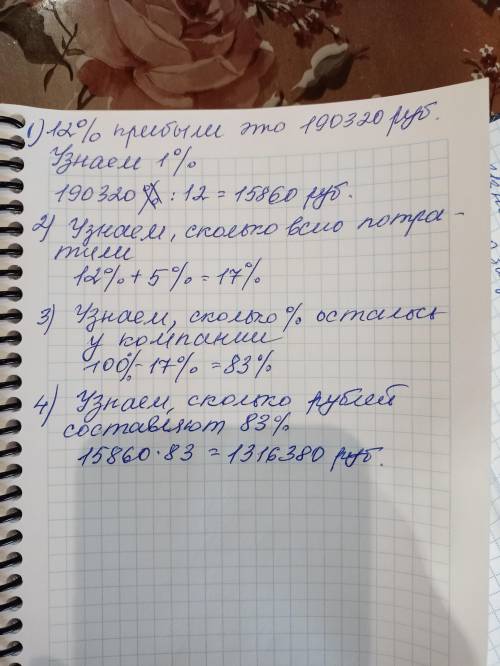 1) 12% прибыли это 190320 руб.
Узнаем 1%
190320 : 12 = 15860 руб.
2) Узнаем, сколько всего потра-
тили
12% + 5% = 17%
3) Узнаем, сколько % осталось
у компании
100% - 17% = 83%
4) Узнаем, сколько рублей
составляют 83%
15860 · 83 = 1316380 руб.